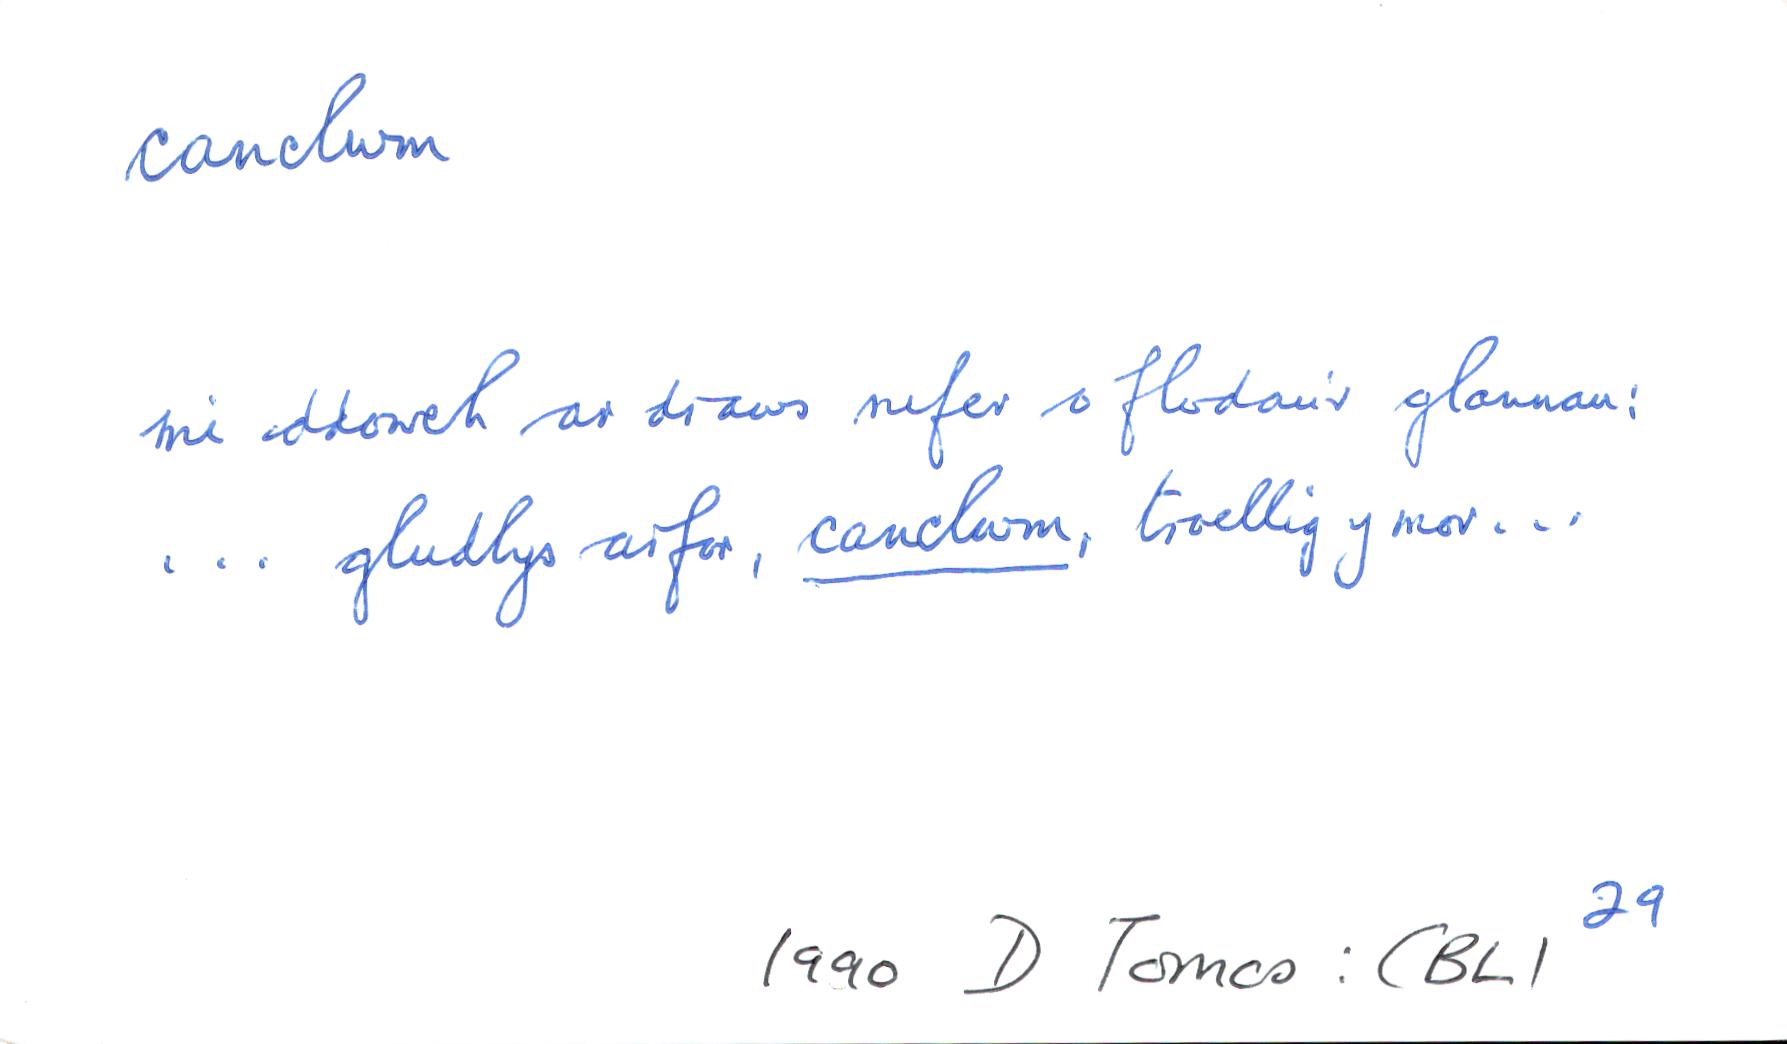 canclwm
mi ddowch ar draws nifer o flodau'r glannau:
... gludlys arfor, canclwm, troellig y mor...
29
1990 D Tomos: CBLl